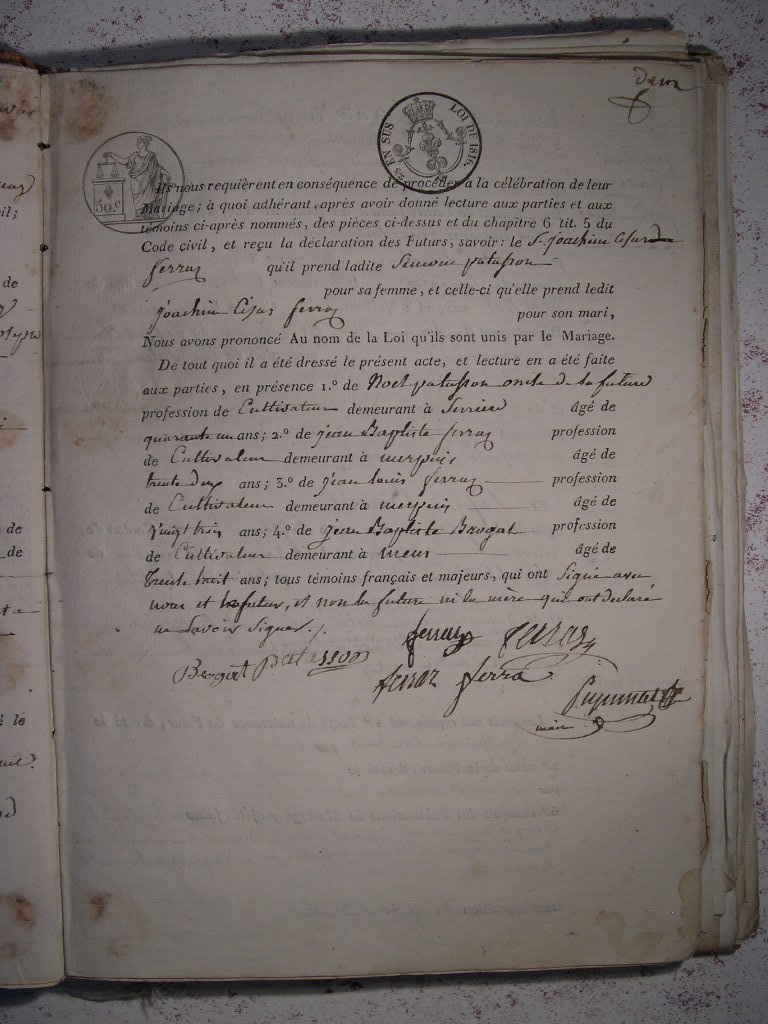 deux
EN SUS LOI DE 1816.
50.c
Ils nous requièrent en conséquence de procéder à la célébration de leur
Mariage; à quoi adhérant, après avoir donné lecture aux parties et aux
témoins ci-après nommés, des pièces ci-dessus et du chapitre 6 tit. 5 du
Code civil, et reçu la déclaration des Futurs, savoir: le S. Joachim César
ferraz qu'il prend ladite patasson
pour sa femme, et celle-ci qu'elle prend ledit
Joachim César ferraz pour son mari,
Nous avons prononcé Au nom de la Loi qu'ils sont unis par le Mariage.
De tout quoi il a été dressé le présent acte, et lecture en a été faite
aux parties, en présence 1.º de Noel patasson oncle de la future
profession de Cultivateur demeurant à âgé de
quarante un ans; 2.º de jean Baptiste ferraz profession
de Cultivateur demeurant à âgé de
trente deux ans; 3.º de jean louis ferraz profession
de Cultivateur demeurant à âgé de
Vingt trois ans; 4.º de jean Baptiste Brogat profession
de Cultivateur demeurant à âgé de
trente huit ans; tous témoins français et majeurs, qui ont Signé avec
nous et le futur, et non la future ni la mère qui ont déclaré
ne Savoir Signer./.
ferraz ferraz
Brogat Patasson ferraz ferra
maire